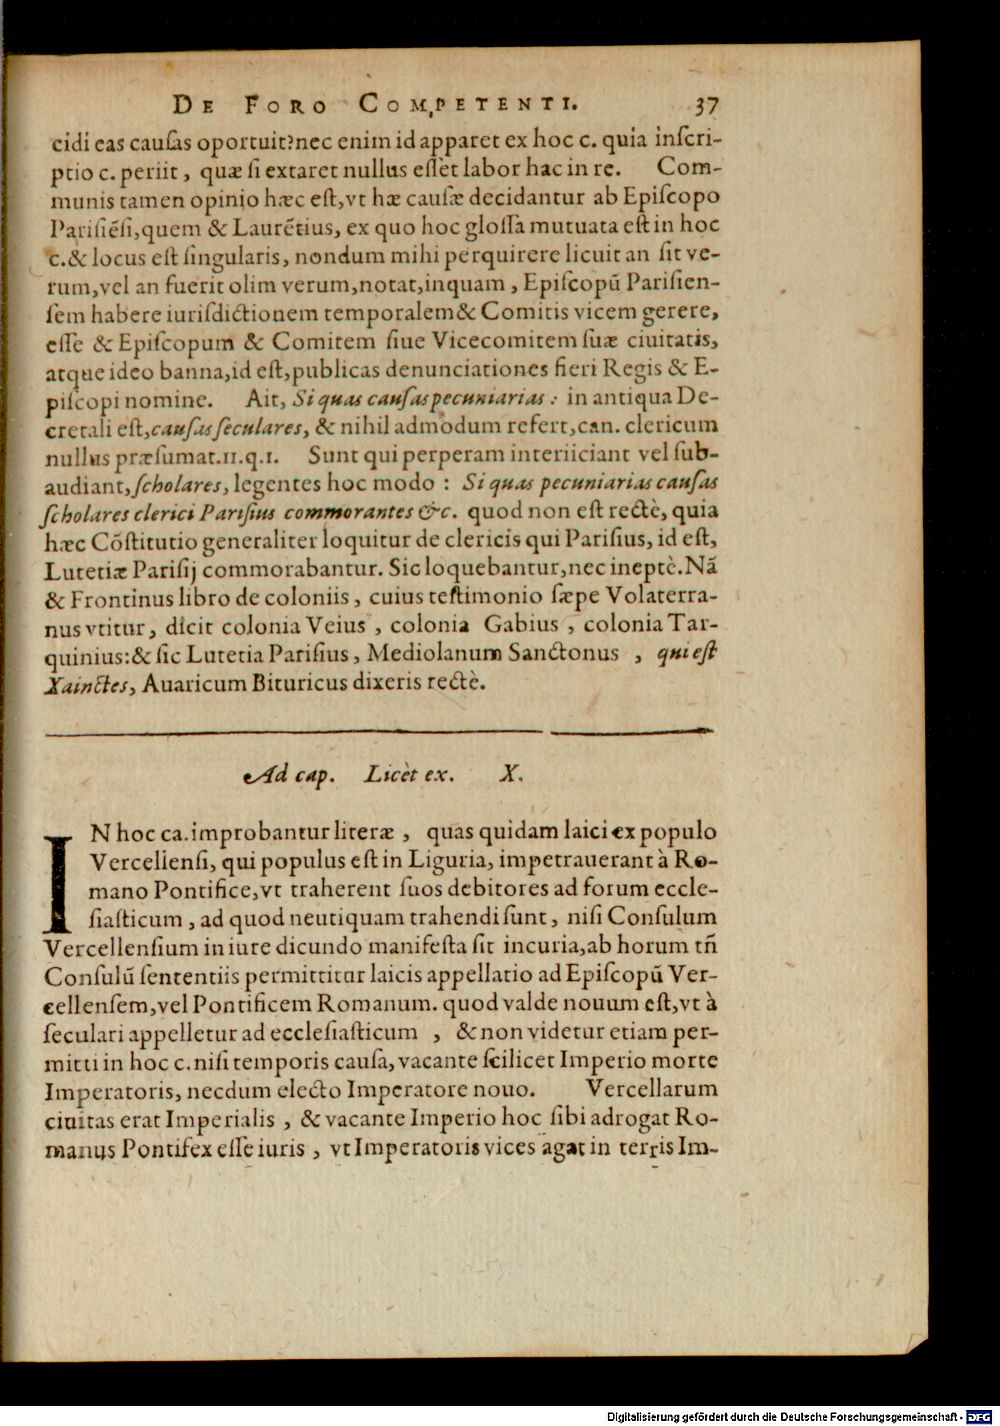 De Foro Competenti. 37
cidi eas cauſas oportuit?nec enim id apparet ex hoc c. quia inſcri-
ptio c. periit, quæ ſi extaret nullus eſſet labor hac in re. Com-
munis tamen opinio hæc eſt,vt hæ cauſæ decidantur ab Epiſcopo
Pariſiẽſi,quem & Laurẽtius, ex quo hoc gloſſa mutuata eſt in hoc
c.& locus eſt ſingularis, nondum mihi perquirere licuit an ſit ve-
rum,vel an fuerit olim verum,notat,inquam, Epiſcopũ Pariſien-
ſem habere iuriſdictionem temporalem& Comitis vicem gerere,
eſſe & Epiſcopum & Comitem ſiue Vicecomitem ſuæ ciuitatis,
atque ideo banna,id eſt,publicas denunciationes fieri Regis & E-
piſcopi nomine. Ait, Si quas cauſas pecuniarias: in antiqua De-
cretali eſt,cauſas ſeculares, & nihil admodum refert,can. clericum
nullus præſumat.11.q.1. Sunt qui perperam interiiciant vel ſub-
audiant,ſcholares, legentes hoc modo: Si quas pecuniarias cauſas
ſcholares clerici Pariſius commorantes &c. quod non eſt rectè, quia
hæc Cõſtitutio generaliter loquitur de clericis qui Pariſius, id eſt,
Lutetiæ Pariſij commorabantur. Sic loquebantur,nec ineptè.Nã
& Frontinus libro de coloniis, cuius teſtimonio ſæpe Volaterra-
nus vtitur, dicit colonia Veius, colonia Gabius, colonia Tar-
quinius:& ſic Lutetia Pariſius, Mediolanum Sanctonus, qui eſt
Xainctes, Auaricum Bituricus dixeris rectè.
Ad cap. Licèt ex. X.
IN hoc ca.improbantur literæ, quas quidam laici ex populo
Vercellenſi, qui populus eſt in Liguria, impetrauerant à Ro-
mano Pontifice,vt traherent ſuos debitores ad forum eccle-
ſiaſticum, ad quod neutiquam trahendi ſunt, niſi Conſulum
Vercellenſium in iure dicundo manifeſta ſit incuria,ab horum tñ
Conſulũ ſententiis permittitur laicis appellatio ad Epiſcopũ Ver-
cellenſem,vel Pontificem Romanum. quod valde nouum eſt,vt à
ſeculari appelletur ad eccleſiaſticum, & non videtur etiam per-
mitti in hoc c.niſi temporis cauſa,vacante ſcilicet Imperio morte
Imperatoris, necdum electo Imperatore nouo. Vercellarum
ciuitas erat Imperialis, & vacante Imperio hoc ſibi adrogat Ro-
manus Pontifex eſſe iuris, vt Imperatoris vices agat in terris Im-
Digitalisierung gefördert durch die Deutsche Forschungsgemeinschaft - DFG